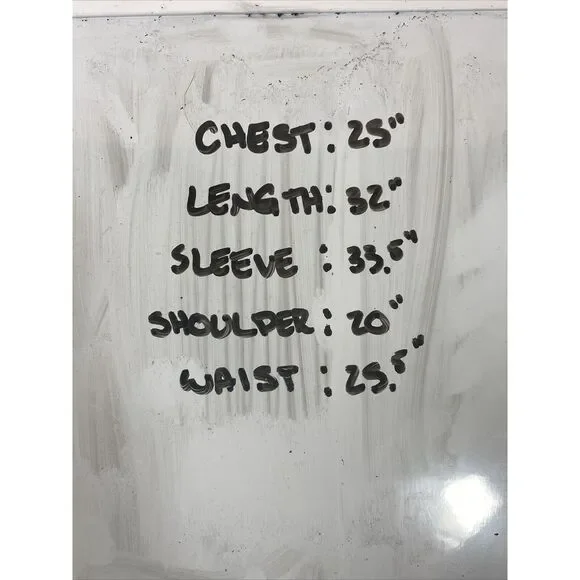 CHEST: 25"
LENGTH: 32"
SLEEVE : 33.5"
SHOULDER: 20"
WAIST : 25.5"